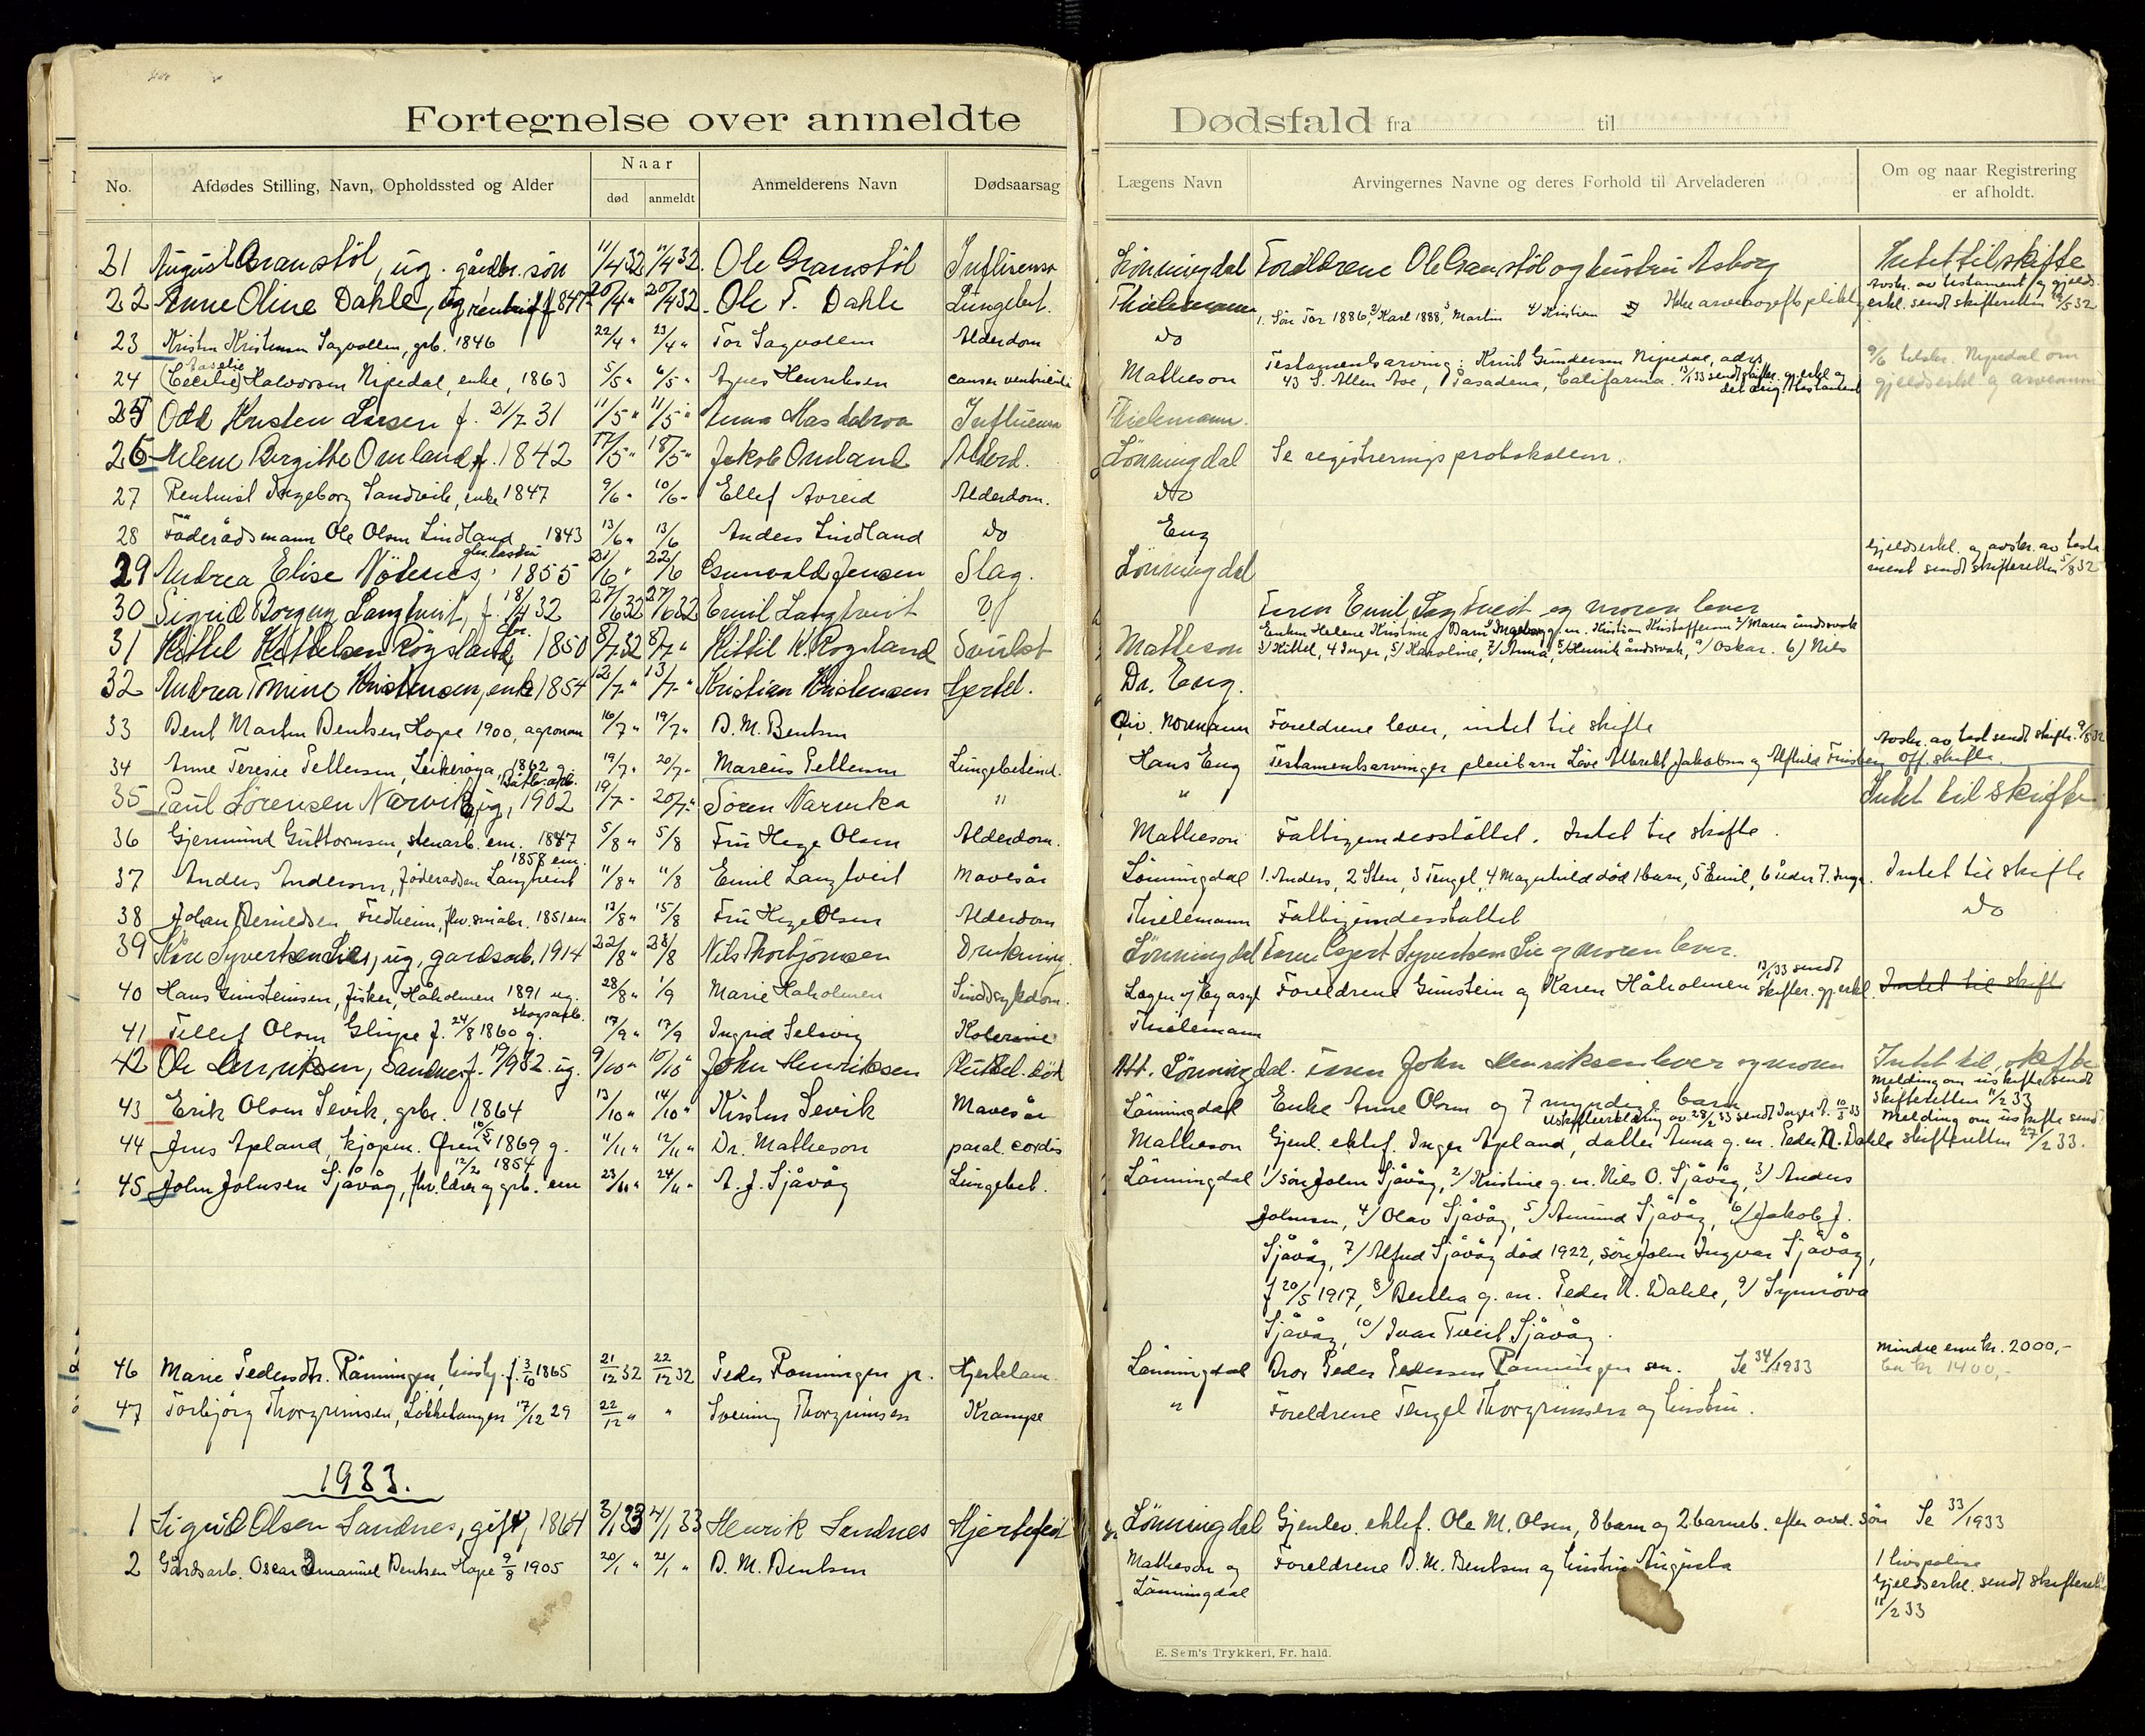 Fortegnelse over anmeldte Dødsfald fra til
No. Afdødes Stilling, Navn, Opholdssted og Alder Naar død anmeldt Anmelderens Navn Dødsaarsag Lægens Navn Arvingernes Navne og deres Forhold til Arveladeren Om og naar Registrering er afholdt.
21 August Granstøl, ug. gårdbr. søn 11/4 32 11/4 32. Ole Granstøl Influensa Lönningdal Foreldrene Ole Granstøl og hustru Asborg Intet til skifte
Avskr. av testament og gjelds-
22 Anne Oline Dahle, ug 1847 20/4 " 20/4 32. Ole T. Dahle Lungebet. Thielemann 1. Sön Tor 1886, 2/ Karl 1888, 3/ Martin 4/ Kristian Ikke arveavgiftspliktig erkl. sendt skifteretten 12/5 32
23 Kristen Kristensen Sagvollen, grb. 1846 22/4 " 23/4 " Tor Sagvollen Alderdom Do
24 (Cecilie) Halvorsen Nipedal, enke, 1863 5/5 " 6/5 " Agnes Henriksen cancer ventriculi Matheson Testamentsarving: Knut Gundersen Nipedal, adrs. 9/6 tilskr. Nipedal om
43 S. Allen Ave, Pasadena, California. 13/1 33 sendt skifter. gj.erkl og gjeldserkl. og
25 Odd Kristen Larsen f. 21/7 31 11/5 " 11/5 " Anna Influensa Thielemann.
26 Helene Birgitte Omland f. 1842 17/5 " 18/5 " Jakob Omland Alderd. Lönningdal Se registreringsprotokollen.
27 Rentenist Ingeborg Sandvik, enke 1847 9/6 " 10/6 " Ellef Avreid Alderdom. Do
28 Föderådsmann Ole Olsen Lindland 1843 13/6 " 13/6 Anders Lindland Do Eng
Gjeldserkl. og avskr. av testa-
29 Andrea Elise Nödenes, 1855 21/6 " 22/6 Gunvald Jensen Slag. Lönningdal ment sendt skifteretten 5/8 32
30 Sigrid Borgny Langtveit, f. 18/4 32 27/6 32 27/6 32 Emil Langtveit Faren Emil Langtveit og moren lever
Enken Helene Kristine, Barn 1/ Ingeborg g.m. Kristian Kristoffersen 2/ Maren åndssvak
31 Kittel Kittelsen Røysland, 1850 8/7 32 8/7 " Kittil K. Røysland Matheson 3/ Kittel, 4 Inger, 5/ Karoline, 7/ Anna, 8/ Henrik åndssvak, 9/ Oskar. 6) Nils
32 Andrea Tomine Kristensen, enke 1854 12/7 " 13/7 " Kristian Kristensen Hjertel. Dr. Eng.
33 Bent Martin Bentsen Hope 1900, agronom 16/7 " 19/7 " B. M. Bentsen Foreldrene lever, intet til skifte
Avskr. av test. sendt skifter. 9/8 32
34 Anne Teresie Pettersen, 1862 g. 19/7 " 20/7 " Marcus Pettersen Lungebetend. Hans Eng Testamentsarvinger pleiebarn Löve Albrekt Jakobsen og Alfhild Off. skifte.
35 Paul Sørensen Narvik, ug, 1902 19/7 " 20/7 " Sören Narvika " " Intet til skifte
36 Gjermund Guttormsen, stenarb. em. 1847 5/8 " 5/8 Fru Hege Olsen Alderdom. Matheson Fattigunderstöttet. Intet til skifte.
1858 em.
37 Anders Andersen, föderadsm Langtveit 11/8 " 11/8 Emil Langtveit Mavesår Lönningdal 1. Anders, 2 Sten, 3 Tengel, 4 Magnhild död 1 barn, 5 Emil, 6 Peder 7. Inga. Intet til skifte
38 Johan Berntsen Fredheim, fhv. småbr. 1851 em 13/8 " 15/8 Fru Hege Olsen Alderdom Thielemann Fattigunderstöttet Do
39 Kåre Syvertsen Lie, ug, gardsarb. 1914 22/8 " 23/8 Nils Thorbjørnsen Drukning Lönningdal Faren Syvert Syvertsen Lie og moren lever.
13/1 33 sendt
40 Hans Gunsteinsen, fisker, Håholmen 1891 ug. 28/8 " 1/9 Marie Håholmen Sinddsykdom. Foreldrene Gunstein og Karen Håholmen skifter. gj.erkl. Intet til skifte
skogsarb.
41 Tellef Olsen Glupe f. 24/8 1860 g. 17/9 " 17/9 Ingrid Selsvig Thielemann
42 Ole Henriksen, Sandnes f. 19/9 32. ug. 9/10 " 10/10 " John Henriksen Att. Lönningdal. Faren John Henriksen lever og moren Intet til skifte
Melding om uskifte sendt
43 Erik Olsen Sevik, grbr. 1864 13/10 " 14/10 " Kristen Sevik Mavesår Lönningdal Enke Anne Olsen og 7 myndige barn skifteretten 11/2 33
Uskifteerklæring av 28/2 33 sendt Inger A. 10/3 33 Melding om uskifte sendt
44 Jens Apland, kjøpm. Ören 10/5 1869 g. 11/11 " 12/11 " Dr. Matheson paral. cordis Matheson Gjenl. ektef. Inger Apland, datter Anna g. m. Peder N. Dahle skifteretten 27/2 33.
12/2 1854
45 John Johnsen Sjåvåg, fhv. lærer og grb. em 23/11 " 24/11 " A. J. Sjåvåg Lungebet. Lönningdal 1/ sön John Sjåvåg, 2/ Kristine g. m. Nils O. Sjåvåg, 3/ Anders
Johnsen, 4/ Olav Sjåvåg, 5/ Amund Sjåvåg, 6/ Jakob J.
Sjåvåg, 7/ Alfred Sjåvåg död 1922, sön John Ingvar Sjåvåg,
f 20/5 1917, 8/ Bertha g. m. Peder N. Dahle, 9/ Synnöva
Sjåvåg, 10/ Ivar Tveit Sjåvåg.
mindre enn kr. 2000,-
46 Marie Pedersdtr. Rönningen, f. 3/10 1865 21/12 32 22/12 32 Peder Rönningen jr. Hjertelam. Lönningdal Bror Peder Pedersen Rönningen sen. Se 34/1933 ca kr 1400,-
47 Torbjörg Thorgrimsen, 17/12 29 22/12 " " Sveinung Thorgrimsen Krampe " Foreldrene Tengel Thorgrimsen og hustru.
1933.
1 Sigrid Olsen Sandnes, gift, 1864 3/1 33 4/1 33 Henrik Sandnes Hjertefeil Lönningdal Gjenlev. ektef. Ole M. Olsen, 8 barn og 2 barneb. efter avd. sön Se 33/1933
2 Gårdsarb. Oscar Emanuel Bentsen Hope 9/8 1905 20/1 " 21/1 " B. M. Bentsen Matheson og Foreldrene B. M. Bentsen og hustru Augusta 1 livspolise
Lönningdal Gjeldserkl. sendt skifteretten
11/2 33
E. Sem's Trykkeri, Fr. hald.